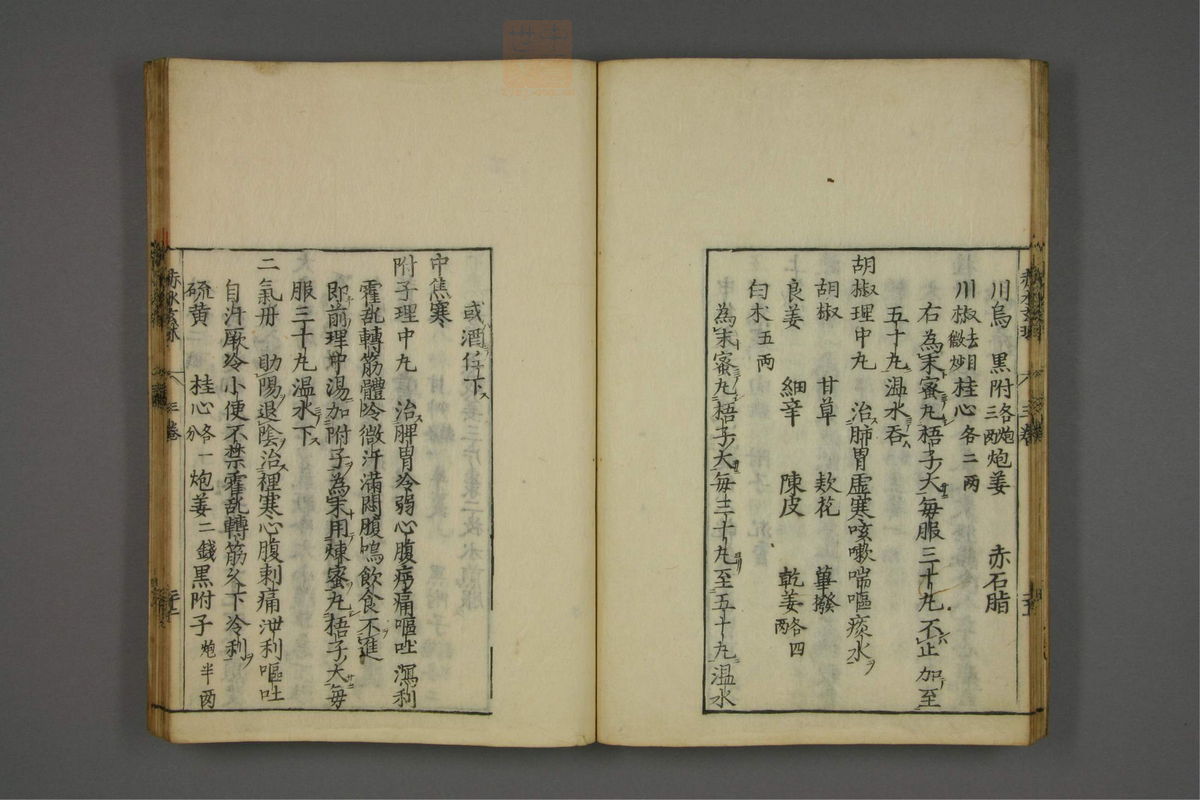 川烏　黒附各炮三两炮姜　赤石脂
川椒去目微炒桂心各二两
右為末蜜丸梧子大每服三十丸不止加至
五十丸温水吞
胡椒理中丸　治肺胃虚寒咳嗽喘嘔痰水
胡椒　甘草　欵花　蓽撥
良姜　細辛　陳皮　乾姜各四两
白术五两
為末蜜丸梧子大每三十丸至五十丸温水
或酒任下
中焦寒
附子理中丸　治脾胃冷弱心腹疞痛嘔吐瀉利
霍乱轉筋體冷微汗滿悶腹鳴飲食不進
即前理中湯加附子為末用煉蜜丸梧子大每
服三十丸温水下
二氣丹　助陽退陰治裡寒心腹刺痛泄利嘔吐
自汗厥冷小便不禁霍乱轉筋久下冷利
硫黄　桂心各一分炮姜二錢黒附子炮半两
赤水玄珠　三卷